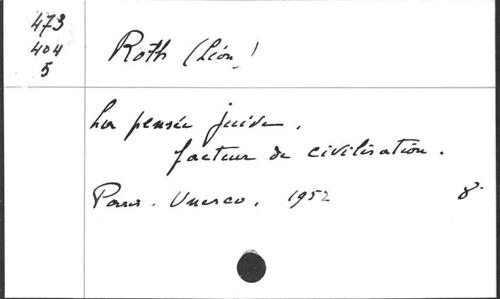 473
404
5
Roth (Léon)
La pensée juive,
facteur de civilisation.
Paris. Unesco, 1952 8°